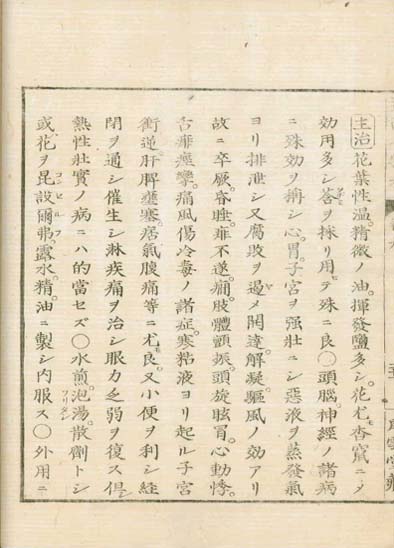 主治花葉性温。精微ノ油。揮發鹽多シ。花尤モ杳竄ニメ
効用多シ蓓ヲ採リ用テ殊ニ良〇頭腦。神経ノ諸病
ニ殊効ヲ稱シ心。胃。子宮ヲ强壮ニシ惡液ヲ蒸發氣
ヨリ排泄シ又腐敗ヲ遏メ開達。解凝。驅風ノ効アリ
故ニ卒厥。昏睡。痱不遂。癇。肢體顫振。頭旋眩冒。心動悸。
舌痱。痙攣。痛風傷冷毒ノ諸症。寒粘液ヨリ起ル子宮
衝逆肝脾壅塞。居氣腹痛等ニ尤モ良。又小便ヲ利シ経
閉ヲ通シ催生シ淋疾痛ヲ治シ眼力之弱ヲ復ス倶シ
熱性壮實ノ病ニハ的當セズ〇水煎。泡湯。散劑トシ
或花ヲ昆設爾弗。露水。精油ニ製シ内服ス〇外用ニ